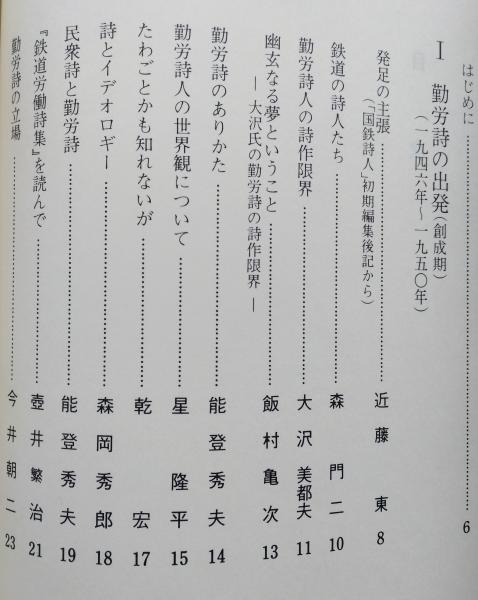 はじめに……………………6
Ⅰ 勤労詩の出発(創成期)
(一九四六年〜一九五〇年)
発足の主張……………………近藤 東 8
(「国鉄詩人」初期編集後記から)
鉄道の詩人たち……………………森 門二 10
勤労詩人の詩作限界……………………大沢美都夫 11
幽玄なる夢ということ……………………飯村亀次 13
— 大沢氏の勤労詩の詩作限界 —
勤労詩のありかた……………………能登秀夫 14
勤労詩人の世界観について……………………星 隆平 15
たわごとかも知れないが……………………乾 宏 17
詩とイデオロギー……………………森岡秀郎 18
民衆詩と勤労詩……………………能登秀夫 19
『鉄道労働詩集』を読んで……………………壺井繁治 21
勤労詩の立場……………………今井朝二 23